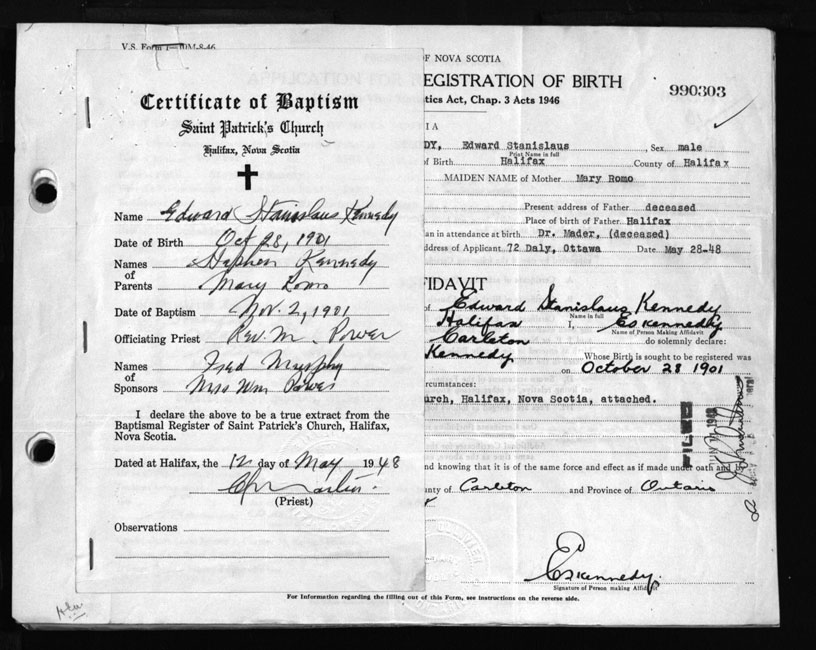 V.S. Form 1—10M-8-46
Certificate of Baptism
Saint Patrick's Church
Halifax, Nova Scotia
Name Edward Stanislaus Kennedy
Date of Birth Oct 28, 1901
Names of Parents Stephen Kennedy
Mary Romo
Date of Baptism Nov. 2, 1901
Officiating Priest Rev. M. Power
Names of Sponsors Fred Murphy
Mrs Wm Power
I declare the above to be a true extract from the
Baptismal Register of Saint Patrick's Church, Halifax,
Nova Scotia.
Dated at Halifax, the 12 day of May 1948
(Priest)
Observations
OF NOVA SCOTIA
REGISTRATION OF BIRTH
990303
tics Act, Chap. 3 Acts 1946
IA
DY, Edward Stanislaus, Sex male
Print Name in full
of Birth Halifax County of Halifax
MAIDEN NAME of Mother Mary Romo
Present address of Father deceased
Place of birth of Father Halifax
an in attendance at birth Dr. Mader, (deceased)
ddress of Applicant 72 Daly, Ottawa Date May 28-48
FIDAVIT
of Edward Stanislaus Kennedy
Name in full
Halifax I, ES Kennedy
Name of Person Making Affidavit
Carleton do solemnly declare:
Kennedy Whose Birth is sought to be registered was
on October 28 1901
rcumstances:
urch, Halifax, Nova Scotia, attached.
FILED
and knowing that it is of the same force and effect as if made under oath and by
unty of Carleton and Province of Ontario
ES Kennedy.
Signature of Person making Affidavit
For Information regarding the filling out of this Form, see instructions on the reverse side.